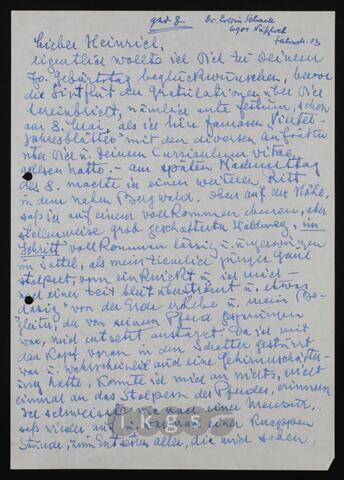 Lieber Heinrich,
eigentlich wollte ich Dich zu Deinem
70. Geburtstag beglückwünschen, bevor
die Sintflut der Gratulationen über Dich
hereinbricht, nämlich ante festum, schon
am 8. Mai, als ich hier famosen Viertel-
jahresblätter mit den diversen Aufsätzen
über Dich u. Deinem Curriculum Vitae
gelesen hatte. – Am späten Nachmittag
des 8. machte ich einen weiteren Ritt
in dem nahen Bergwald. Oben auf der Höhe,
saß ich auf einem vollkommen ebenen, aber
stellenweise grob geschotterten Waldweg, im
Schritt vollkommen lässig u. ungezwungen
im Sattel, als mein ziemlich junger Gaul
stolpert, vorn einknickt u. ich mich –
nach einer Zeit blutüberströmt u. etwas
"dasig" von der Erde erhebe u. mein Be-
gleiter, der von seinem Pferd gesprungen
war, mich entsetzt anstarrt. Da ich mit
dem Kopf voran in den Schotter gestürzt
war u. wahrscheinlich auch eine Gehirnerschütter-
ung hatte, konnte ich mich an nichts, nicht
einmal an das Stolpern des Pferdes, erinnern.
Ich schweisste wie nach einer Mensur,
saß wieder auf u. war nach einer knappen
Stunde, zum Entsetzen aller, die mich sahen,
ikgs